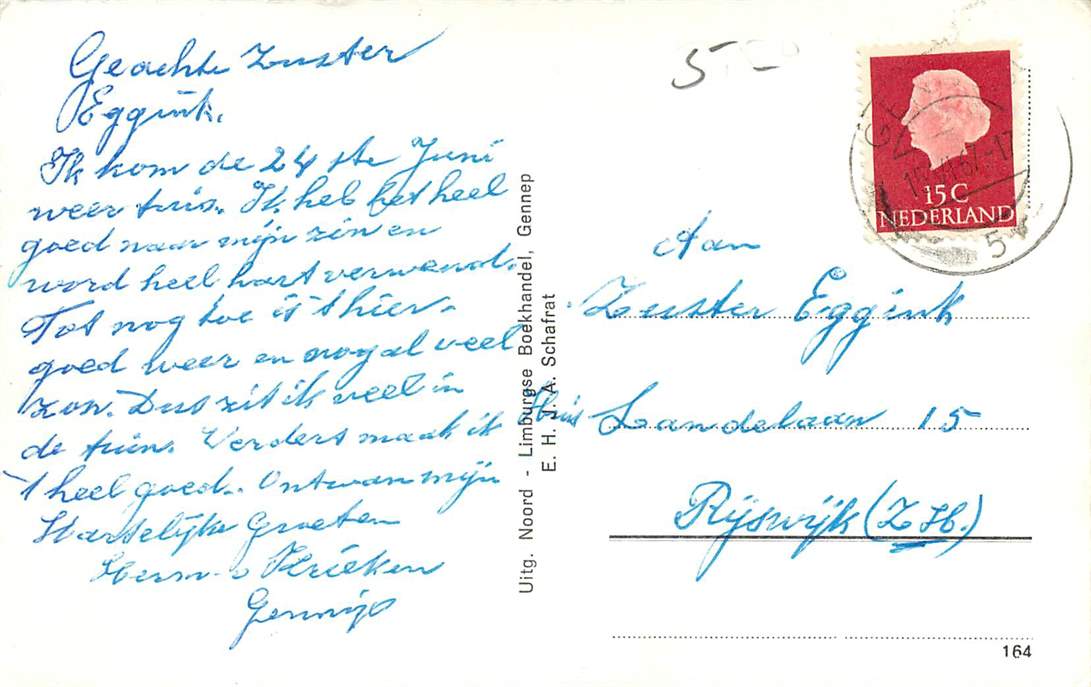 Geachte Zuster
Eggink.
Ik kom de 24 ste Juni
weer tuis. Ik heb het heel
goed naar mijn zin en
word heel hart verwend.
Tot nog toe is 't hier
goed weer en nogal veel
zon. Dus zit ik veel in
de tuin. Verders maak ik
't heel goed. Ontvan mijn
Hartelijke Groeten
Herm
Gennip
Uitg. Noord - Limburgse Boekhandel, Gennep
E. H. J. A. Schafrat
5
15 C
NEDERLAND
5
Aan
Zuster Eggink
Huis Landelaan 15
Rijswijk (Z.H.)
164